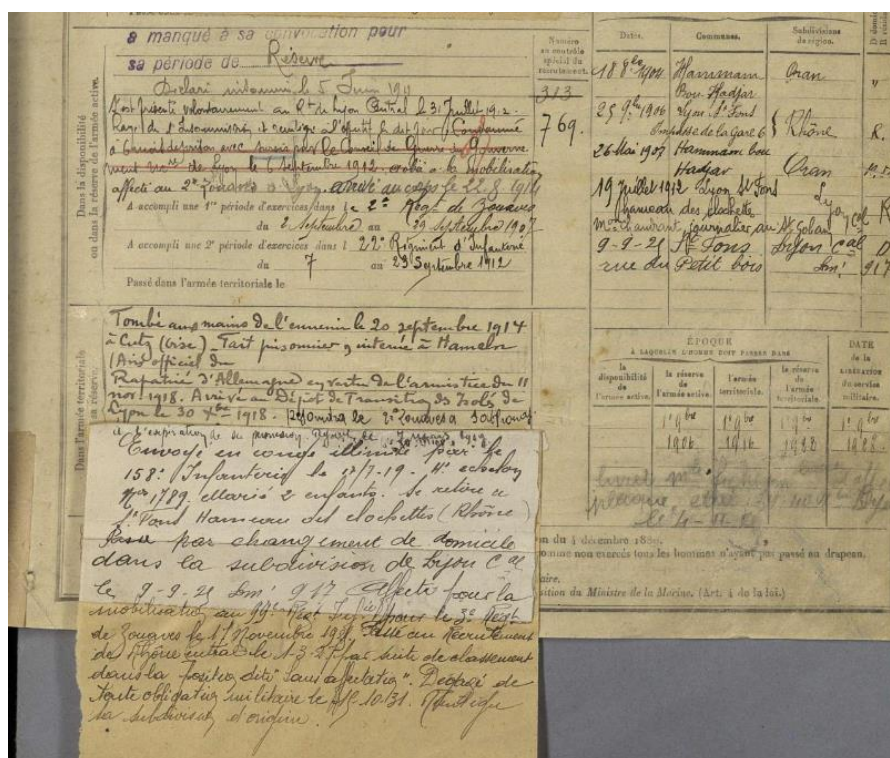 a manqué à sa convocation pour
sa période de Réserve
Déclaré insoumis le 5 Juin 191
S'est présenté volontairement au Rt de Lyon Central le 31 Juillet 1912.
Rayé de l'Insoumission et réintégré à l'effectif le dit jour. Condamné
à de prison avec sursis par le Conseil de Guerre du Gouverne
ment de Lyon le 6 Septembre 1912. à la mobilisation
affecté au 2e Zouaves à Lyon. arrivé au corps le 22.8.1914
A accompli une 1re période d'exercices dans le 2e Régt de Zouaves
du 2 Septembre au 29 Septembre 1907
A accompli une 2e période d'exercices dans l 22e Régiment d'Infanterie
du 7 au 23 Septembre 1912
Passé dans l'armée territoriale le
Dans la disponibilité
ou dans la réserve de l'armée active.
Numéro
au contrôle
spécial du
recrutement.
313
769.
Dates.
Communes.
Subdivisions
de région.
18 8bre 1904 Hammam Oran
Bou Hadjar
25 9bre 1906 Lyon St Fons
Impasse de la Gare 6 Rhône R.
26 Mai 1907 Hammam bou
Hadjar Oran
19 Juillet 1912 Lyon St Fons
hameau des clochettes Lyon cal R
journalier au St Gobain
9-9-21 St Fons Lyon cal
rue du Petit bois 917
Dans l'armée territoriale
Tombé aux mains de l'ennemi le 20 septembre 1914
à Cuts (oise). Fait prisonnier, interné à Hameln
(Avis officiel du
Rapatrié d'Allemagne en vertu de l'armistice du 11
nov. 1918. Arrivé au Dépôt de Transition des Isolés de
Lyon le 30 Xbre 1918. rejoindra le 2e Zouaves à Sathonay
à l'expiration de sa permission
Envoyé en congé illimité par le
158e Infanterie le 17-7-19. 4e échelon
No 1789. Marié 2 enfants. Se retire à
St Fons Hameau des clochettes (Rhône)
Passé par changement de domicile
dans la subdivision de Lyon Cal
le 9-9-21 917 Affecté pour la
mobilisation au 99e Régt Inf. le 3e Régt
de Zouaves le 17 Novembre Passé au Recrutement
du Rhône central le 1-3-27 par suite de classement
dans la position dite "sans affectation". Dégagé de
toute obligation militaire le 15.10.31.
sa subdivision d'origine.
ÉPOQUE
À LAQUELLE L'HOMME DOIT PASSER DANS
la
disponibilité
de
l'armée active.
la réserve
de
l'armée active.
l'armée
territoriale.
la réserve
de
l'armée
territoriale.
DATE
de la
LIBÉRATION
du service
militaire.
1er 9bre
1906
1er 9bre
1916
1er 9bre
1er 9bre
1928
on du 4 décembre 1889.
omme non exercés tous les hommes n'ayant pas passé au drapeau.
aire.
sition du Ministre de la Marine. (Art. 4 de la loi.)